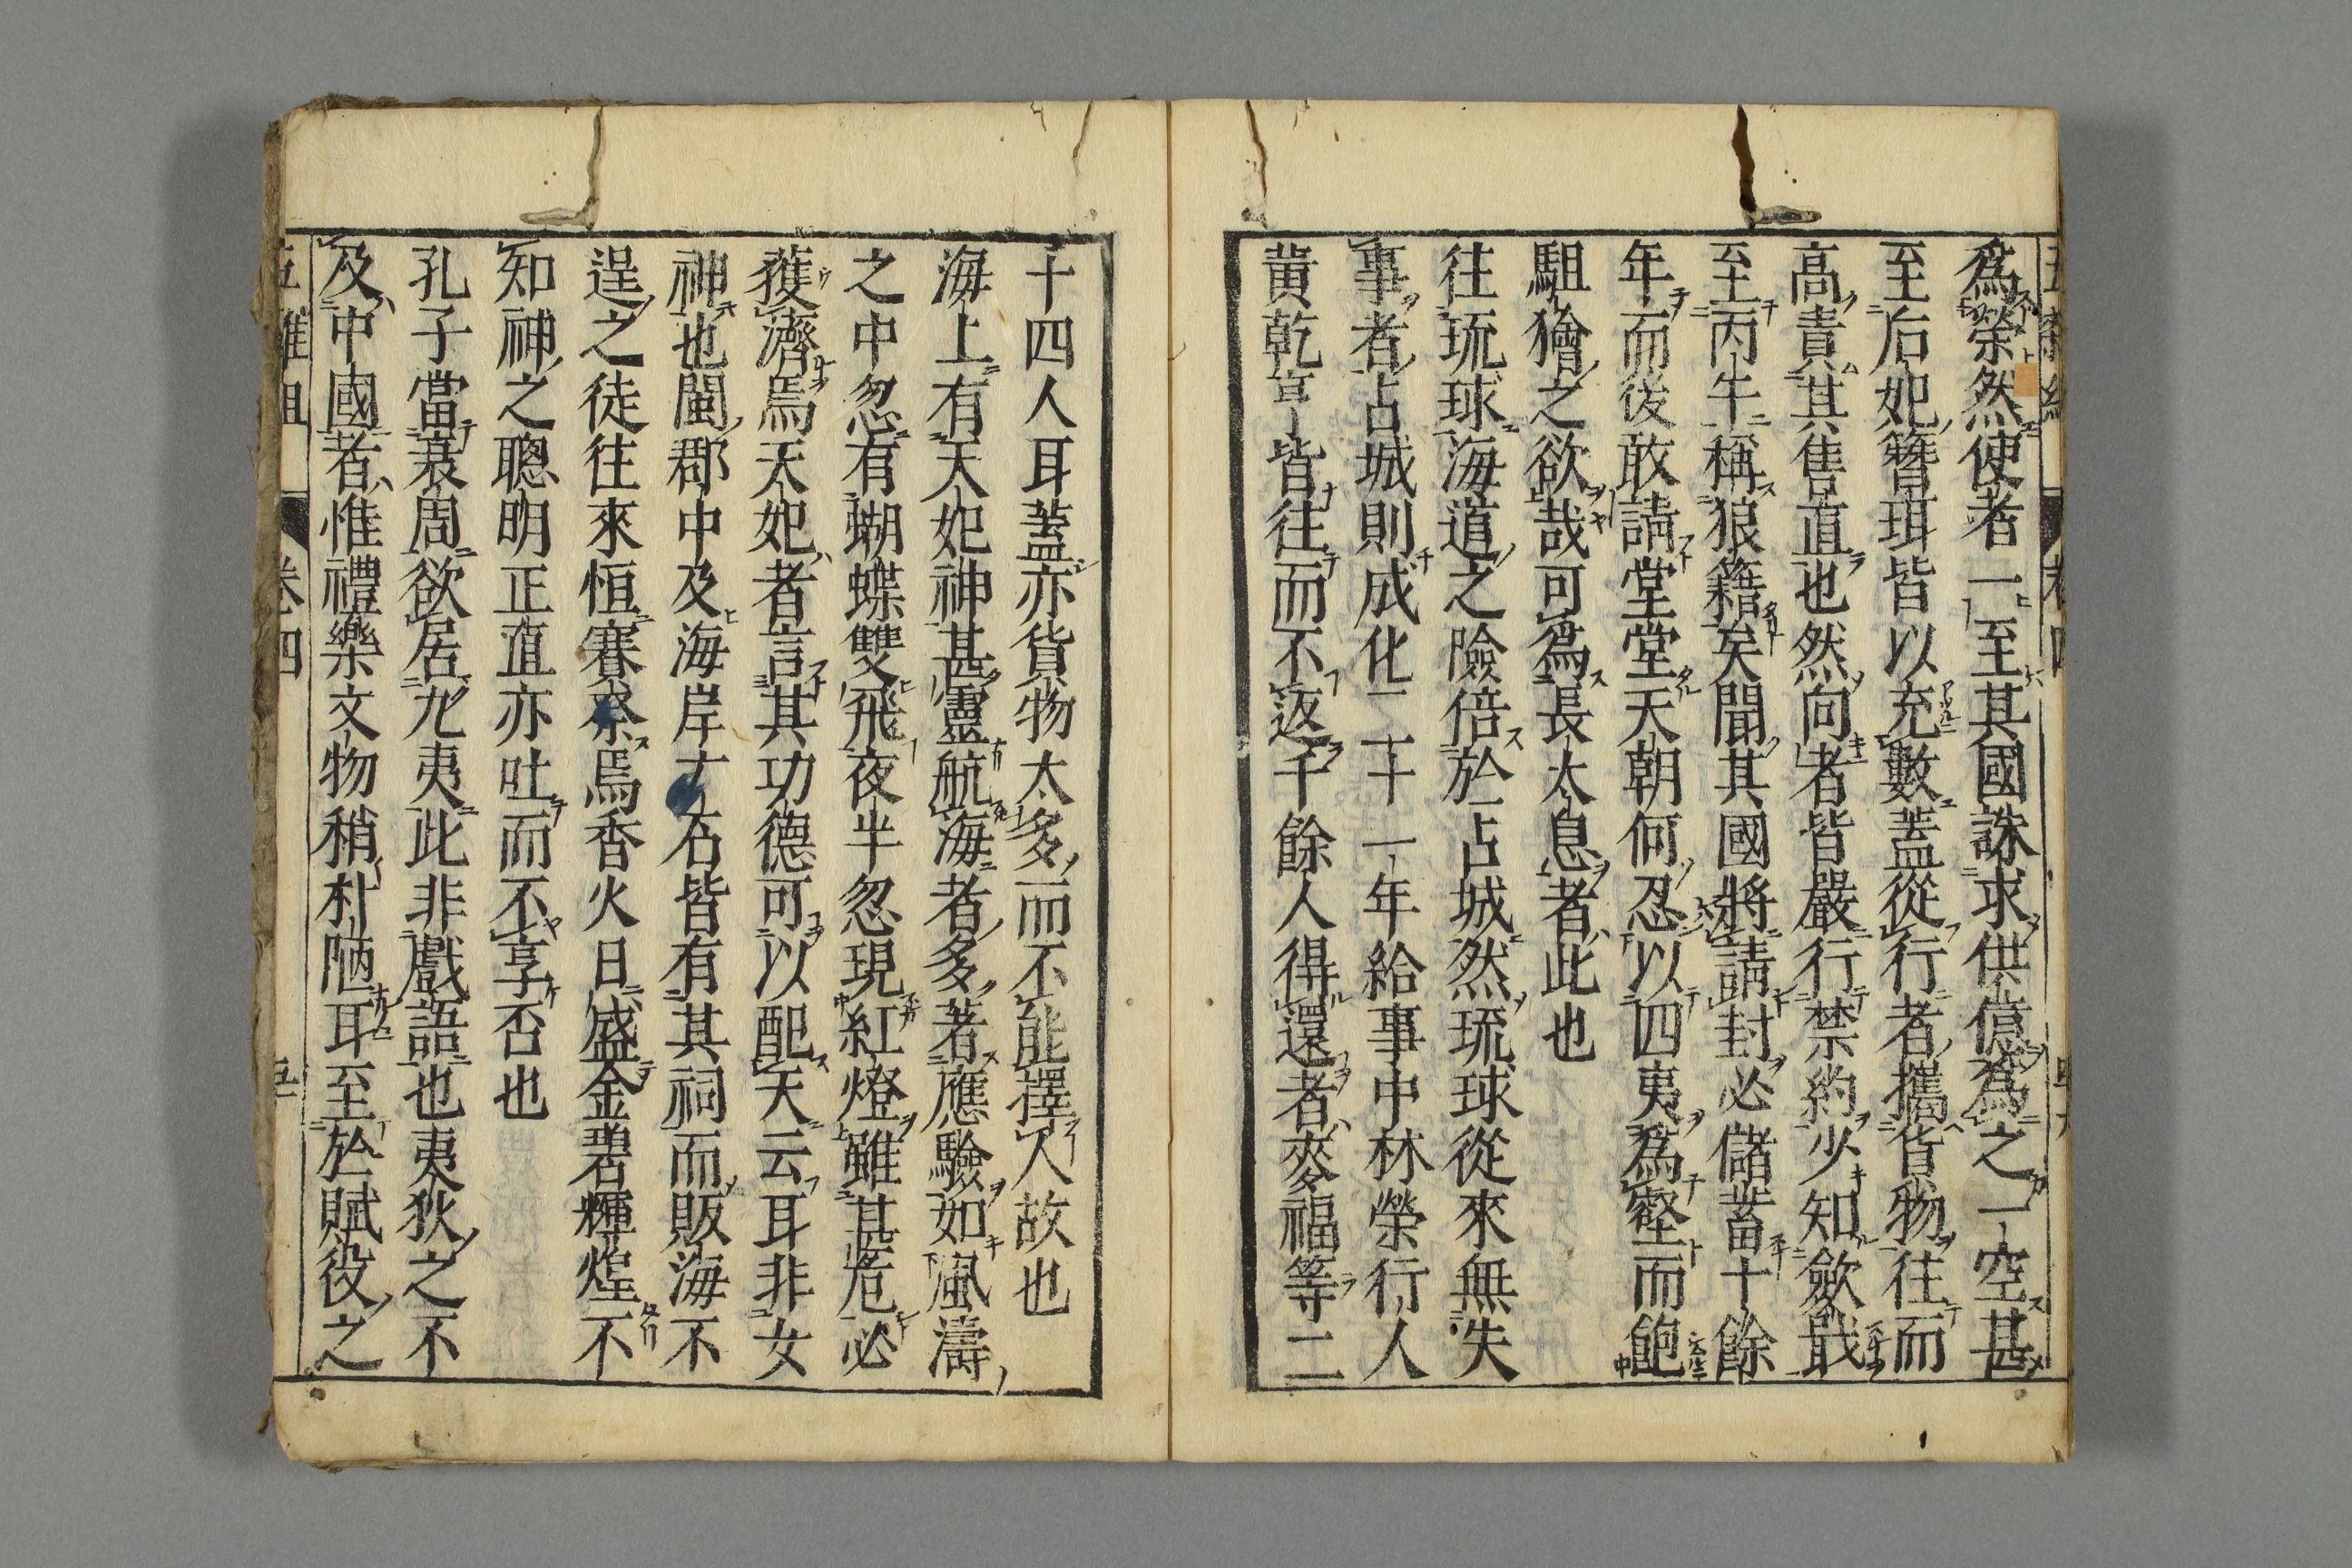 為榮然使者一至其國誅求供億為之一空甚
至后妃簪珥皆以充數蓋從行者攜貨物往而
高責其售直也然向者皆嚴行禁約少知歛戢
至丙午稱狼籍矣聞其國將請封必儲蓄十餘
年而後敢請堂堂天朝何忍以四夷為壑而飽
駔獪之欲哉可為長太息者此也
往琉球海道之險倍於占城然琉球從來無失
事者占城則成化二十一年給事中林榮行人
黃乾亨皆往而不返千餘人得還者麥福等二
十四人耳蓋亦貨物太多而不能擇人故也
海上有天妃神甚靈航海者多著應驗如風濤
之中忽有蝴蝶雙飛夜半忽現紅燈雖甚危必
獲濟焉天妃者言其功德可以配天云耳非女
神也閩郡中及海岸左右皆有其祠而販海不
逞之徒往來恒賽祭焉香火日盛金碧輝煌不
知神之聰明正直亦吐而不享否也
孔子當衰周欲居九夷此非戲語也夷狄之不
及中國者惟禮樂文物稍朴陋耳至於賦役之
五雜俎
卷四